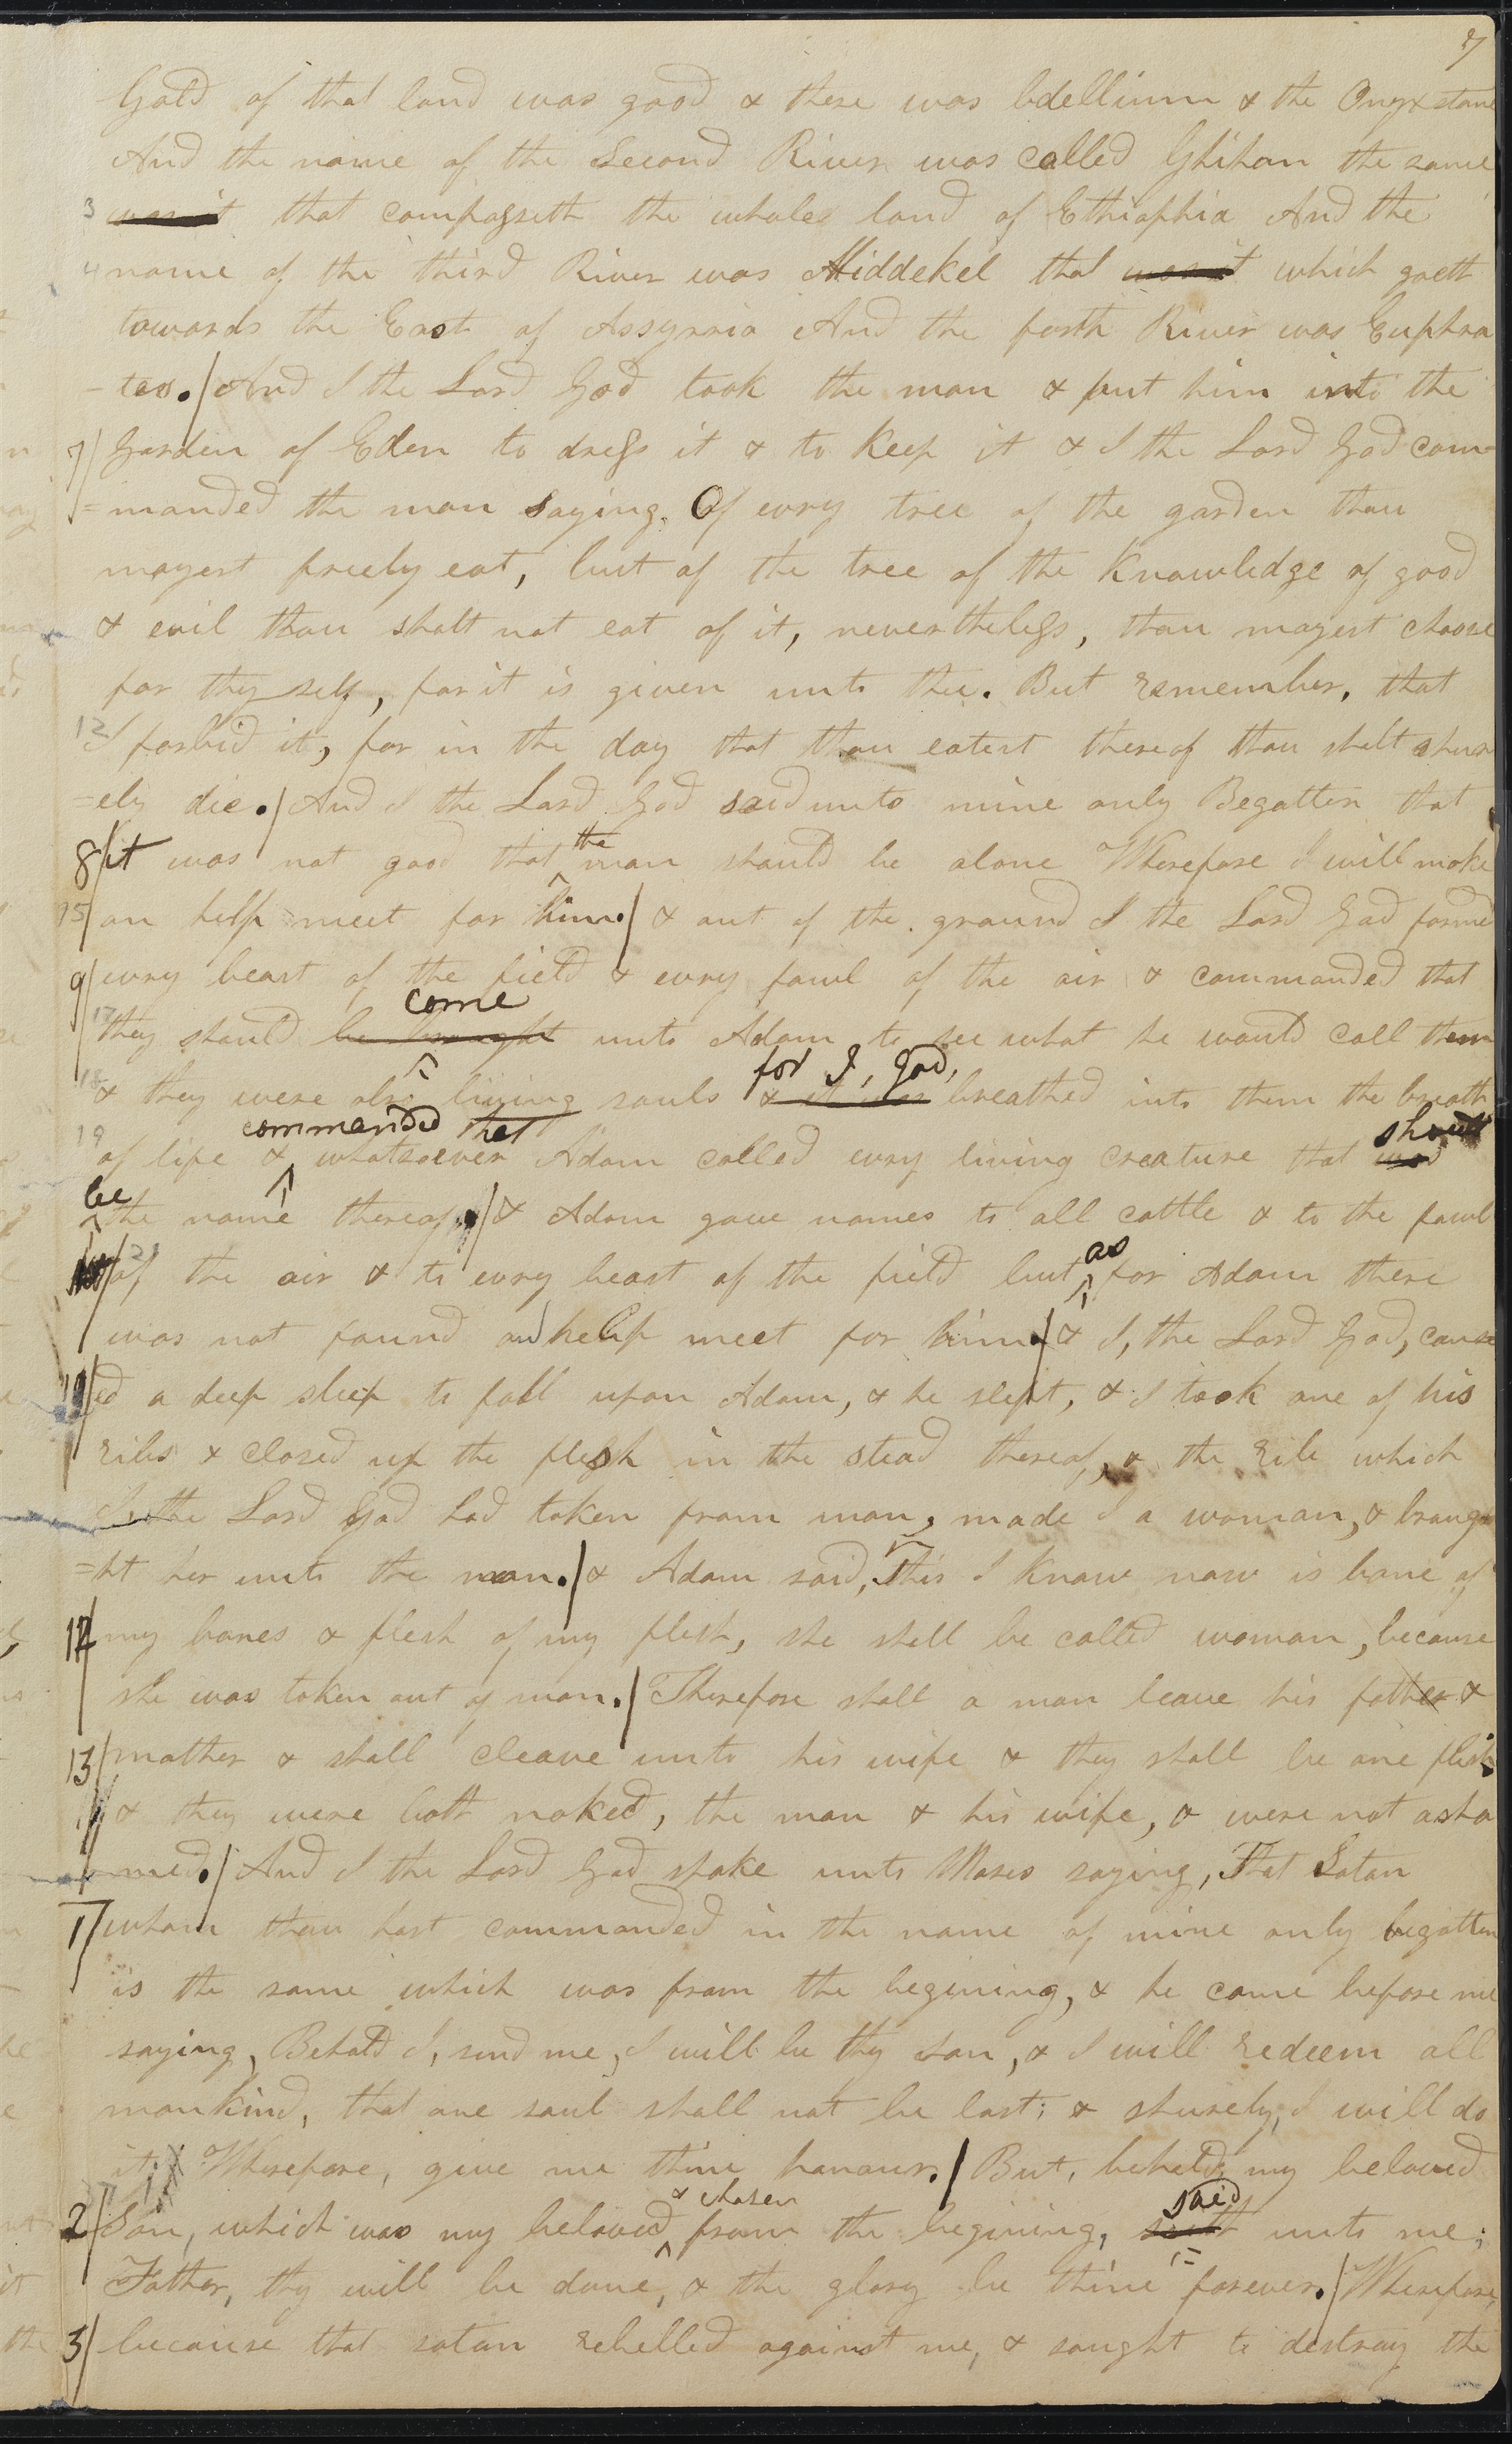 7
Gold of that land was good & there was bdellium & the Onyx stone
And the name of the Second River was called Ghihon the same
3 was it that compasseth the whole land of Ethiophia And the
4 name of the third River was Hiddekel that was it which goeth
towards the East of Assyrria And the forth River was Euphra
-tes. / And I the Lord God took the man & put him into the
7/ Garden of Eden to dress it & to keep it & I the Lord God com-
=manded the man saying. Of evry tree of the garden thou
mayest freely eat, but of the tree of the Knowledge of good
& evil thou shalt not eat of it, nevertheless, thou mayest choose
for thy self, for it is given unto thee. But remember, that
12 I forbid it, for in the day that thou eatest thereof thou shalt shur
=ely die. / And I the Lord God said unto mine only Begotten that
the
8/ it was not good that man should be alone Wherefore I will make
15/ an help meet for him. / & out of the ground I the Lord God formed
9/ evry beast of the field & evry fowl of the air & commanded that
come
17 they should be brought unto Adam to see what he would call them
for I, God,
18 & they were also living souls & it was breathed into them the breath
commanded that should
19 of life & whatsoever Adam called evry living creature that was
be
the name thereof. / & Adam gave names to all cattle & to the fowl
as
21 of the air & to evry beast of the field but for Adam there
was not found an help meet for him. / & I, the Lord God, caus
ed a deep sleep to fall upon Adam, & he slept, & I took one of his
ribs & closed up the flesh in the stead thereof, & the rib which
I the Lord God had taken from man, made I a woman, & broug
=ht her unto the man. / & Adam said, This I know now is bone of
12/ my bones & flesh of my flesh, she shall be called woman, because
she was taken out of man. / Therefore shall a man leave his father &
13/ mother & shall cleave unto his wife & they shall be one flesh
& they were both naked, the man & his wife, & were not asha
med. / And I the Lord God spake unto Moses saying, That Satan
1/ whom thou hast commanded in the name of mine only begotten
is the same which was from the begining, & he came before me
saying, Behold I, send me, I will be thy son, & I will redeem all
mankind, that one soul shall not be lost; & shurely, I will do
it; Wherefore, give me thine honour. / But, behold, my beloved
& chosen said
2/ Son, which was my beloved from the begining, unto me;
Father, thy will be done, & the glory be thine forever. / Wherefore,
3/ because that satan rebelled against me, & sought to destroy the